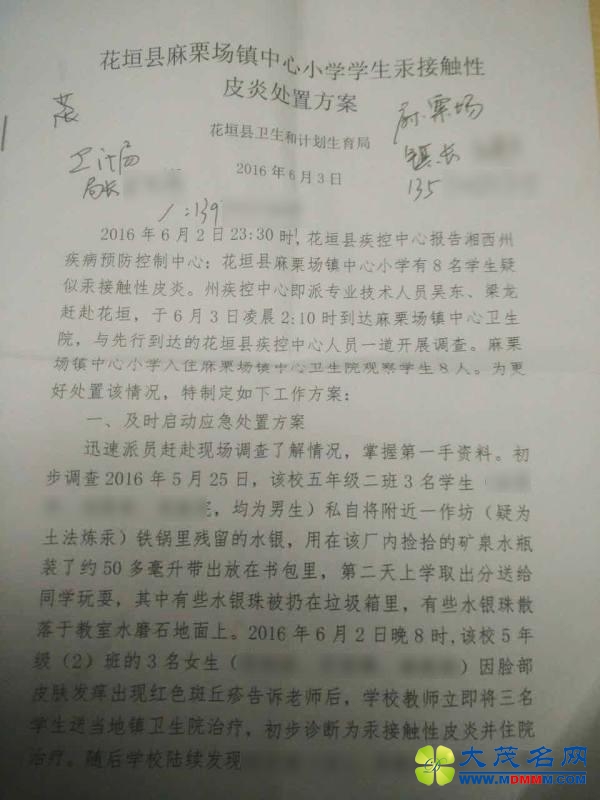 花垣县麻栗场镇中心小学学生汞接触性
皮炎处置方案
花垣县卫生和计划生育局
2016年6月3日
麻栗场
镇长
135
卫计局
局长
139
2016年6月2日23:30时,花垣县疾控中心报告湘西州
疾病预防控制中心:花垣县麻栗场镇中心小学有8名学生疑
似汞接触性皮炎。州疾控中心即派专业技术人员吴东、梁龙
赶赴花垣,于6月3日凌晨2:10时到达麻栗场镇中心卫生
院,与先行到达的花垣县疾控中心人员一道开展调查。麻栗
场镇中心小学入住麻栗场镇中心卫生院观察学生8人。为更
好处置该情况,特制定如下工作方案:
一、及时启动应急处置方案
迅速派员赶赴现场调查了解情况,掌握第一手资料。初
步调查2016年5月25日,该校五年级二班3名学生(
,均为男生)私自将附近一作坊(疑为
土法炼汞)铁锅里残留的水银,用在该厂内捡拾的矿泉水瓶
装了约50多毫升带出放在书包里,第二天上学取出分送给
同学玩耍,其中有些水银珠被扔在垃圾箱里,有些水银珠散
落于教室水磨石地面上。2016年6月2日晚8时,该校5年
级(2)班的3名女生( )因脸部
皮肤发痒出现红色斑丘疹告诉老师后,学校教师立即将三名
学生送当地镇卫生院治疗,初步诊断为汞接触性皮炎并住院
治疗。随后学校陆续发现
大茂名网
www.MDMMM.com